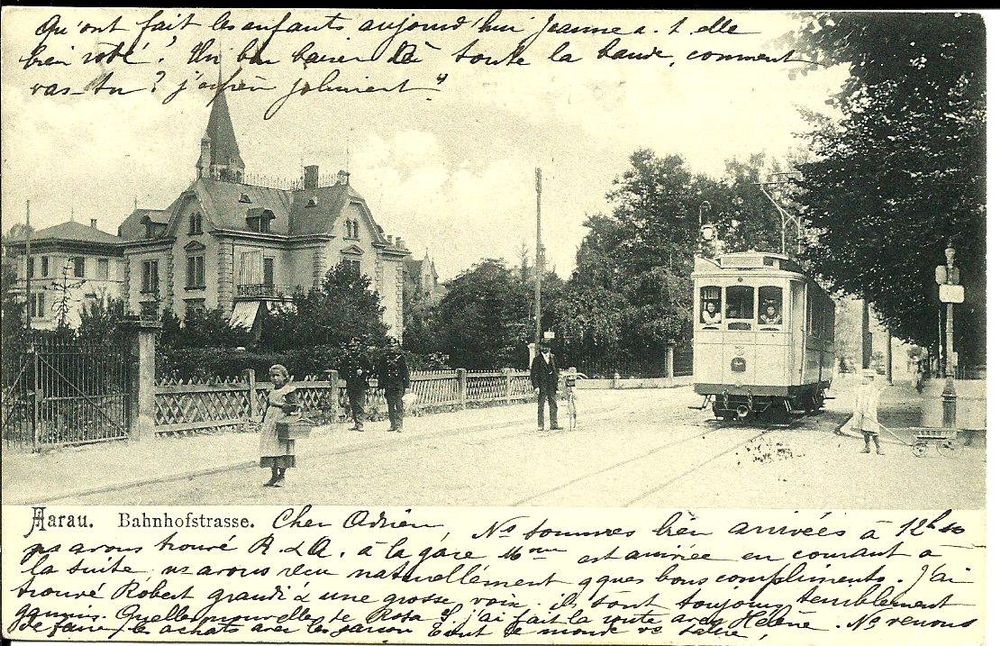 Qu'ont fait les enfants aujourd'hui Jeanne a-t-elle
bien roté? Un bon baiser là toute la bande, comment
vas-tu? j'espèr joliment
Aarau. Bahnhofstrasse. Cher Adrien, Ns sommes bien arrivées à 12h
ns avons trouvé R & A. à la gare, Mme est arrivée en courant à
la suite, ns avons reçu naturellement qques bons compliments. J'ai
trouvé Robert grandi & une grosse voix. ils sont toujours terriblement
gamins. Quelles nouvelles de Rosa? j'ai fait la route avec Hélène. Ns venons
de faire des achats avec les garçons Tout le monde vs salue,